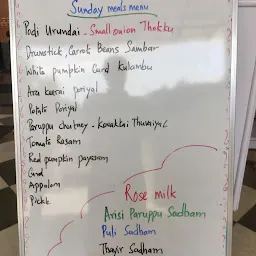 Sunday meals menu
Podi Urundai - Small onion Thokku
Drumstick, Carrot Beans Sambar
White pumpkin Curd Kulambu
Ava kaarai poriyal
Potato Poriyal
Paruppu chutney - Kovakkai Thuvaiyal
Tomato Rasam
Red pumpkin payasam
Curd
Appalam
Pickle
Rose milk
Arisi Paruppu Sadham
Puli Sadham
Thayir Sadham